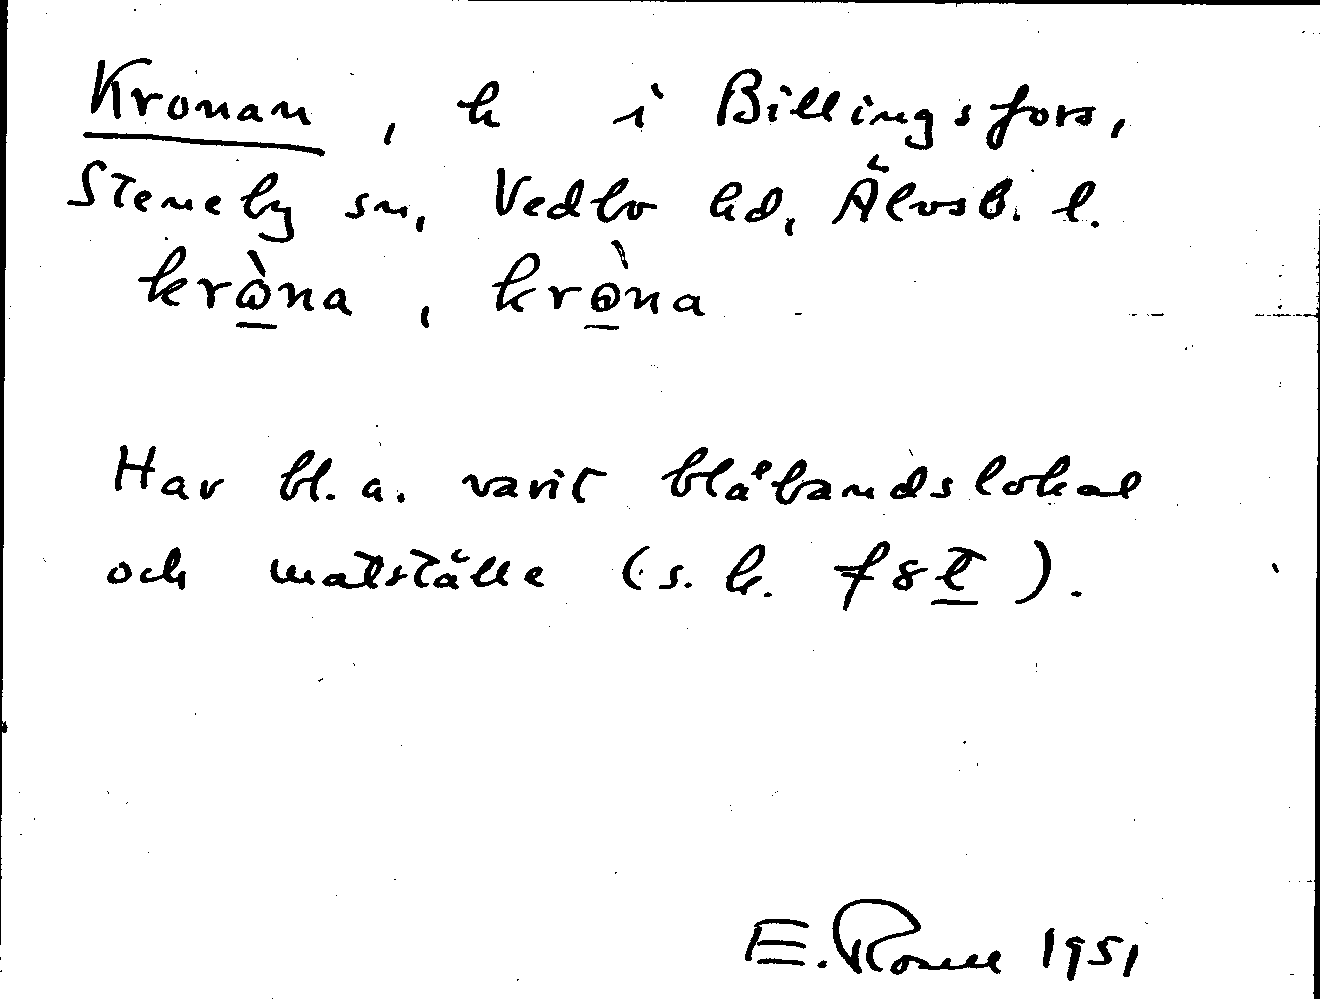 Kronan, h i Billingsfors,
Steneby sn, Vedbo hd, Älvsb. l.
krὼna, kròna
Har bl. a. varit blåbandslokal
och matställe (s. k. f8t).
E. 1951